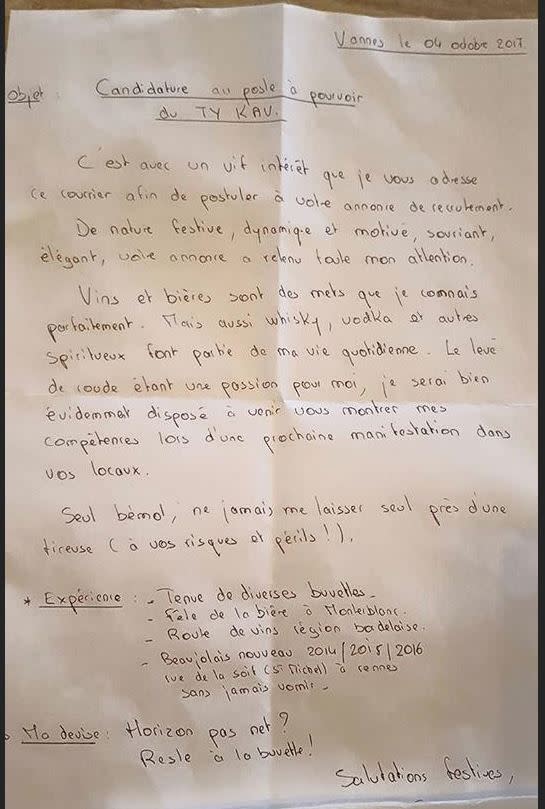 Vannes le 04 octobre 2017.
Objet : Candidature au poste à pourvoir
du TY KAV.
C'est avec un vif intérêt que je vous adresse
ce courrier afin de postuler à votre annonce de recrutement.
De nature festive, dynamique et motivé, souriant,
élégant, votre annonce a retenu toute mon attention.
Vins et bières sont des mets que je connais
parfaitement. Mais aussi whisky, vodka et autres
spiritueux font partie de ma vie quotidienne. Le levé
de coude étant une passion pour moi, je serai bien
évidemmet disposé à venir vous montrer mes
compétences lors d'une prochaine manifestation dans
vos locaux.
Seul bémol, ne jamais me laisser seul près d'une
tireuse (à vos risques et périls !).
* Expérience : - Tenue de diverses buvettes -
- Fête de la bière à Monterblanc.
- Route de vins région bordelaise.
- Beaujolais nouveau 2014/2015/2016
rue de la soif (St Michel) à rennes
sans jamais vomir -
Ma devise : Horizon pas net ?
Reste à la buvette !
Salutations festives,